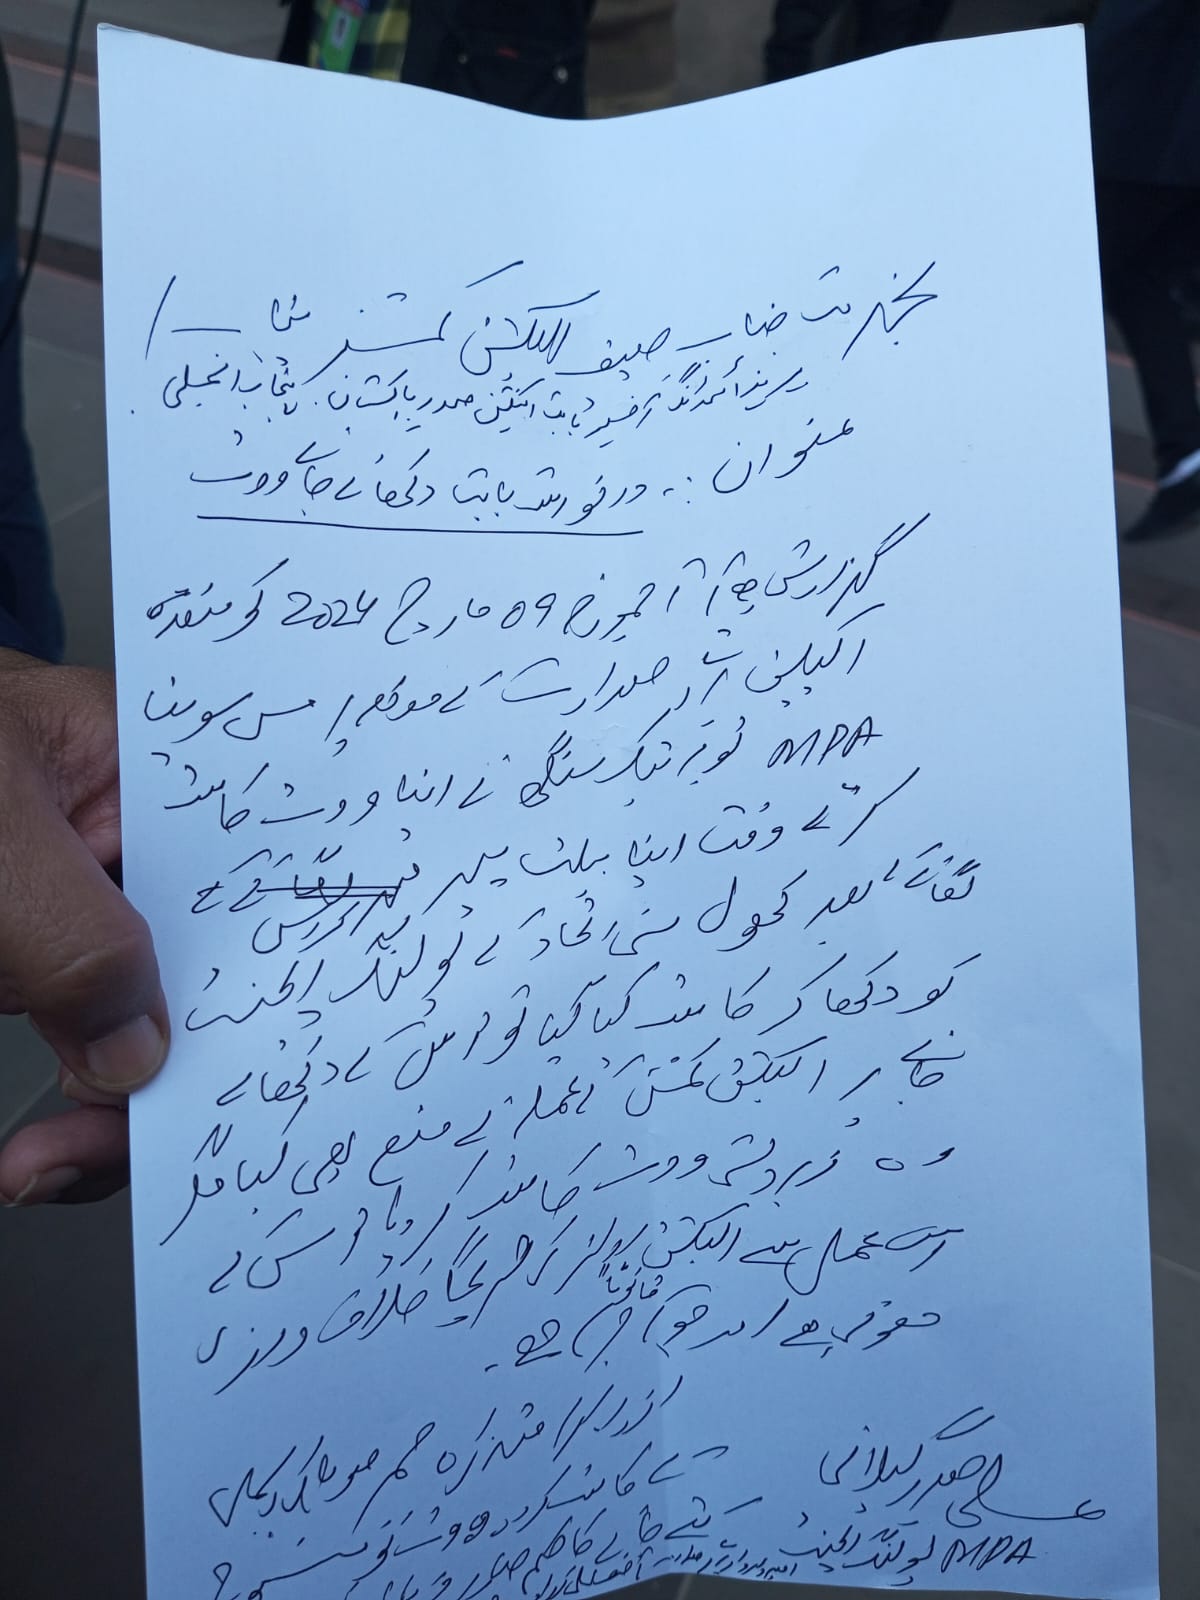 بخدمت جناب چیف الیکشن کمشنر صاحب /
پریذائیڈنگ آفیسر بابت الیکشن صدر پاکستان پنجاب اسمبلی
عنوان :۔ درخواست بابت دکھائے جانے ووٹ
گزارش ہے آج مورخہ 09 مارچ 2024 کو منعقدہ
الیکشن صدارت کے موقع پر مس سونیا
MPA ٹوبہ ٹیک سنگھ نے اپنا ووٹ کاسٹ
کرتے وقت اپنا بیلٹ پیپر
لگانے کے بعد کھول سنی اتحاد کے پولنگ ایجنٹ
کو دکھا کر کاسٹ کیا گیا تو اس کے دکھائے
جانے پر الیکشن کمیشن کے عملہ نے منع بھی کیا مگر
وہ زبردستی ووٹ کاسٹ کر دیا اس کے
اس عمل سے الیکشن رولز کی صریحاً خلاف ورزی
ہوئی ہے اور قانوناً جرم ہے۔
متذکرہ
کے کاسٹ کردہ ووٹ کو منسوخ
کئے جانے کا حکم صادر
علی حیدر گیلانی
MPA پولنگ ایجنٹ